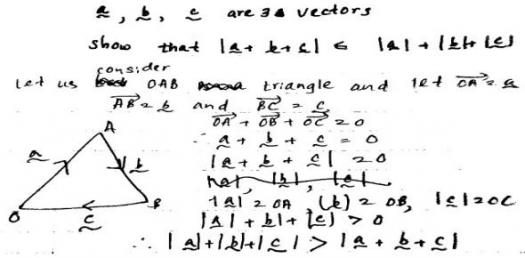 a, b, c are 3 vectors
show that |a + b + c| ≤ |a| + |b| + |c|
Let us consider OAB triangle and let OA = a
AB = b and BC = c
OA + OB + OC = 0
a + b + c = 0
|a + b + c| = 0
|a|, |b|, |c|
|a| = OA |b| = OB, |c| = OC
|a| + |b| + |c| > 0
∴ |a| + |b| + |c| > |a + b + c|
A
a b
O c B